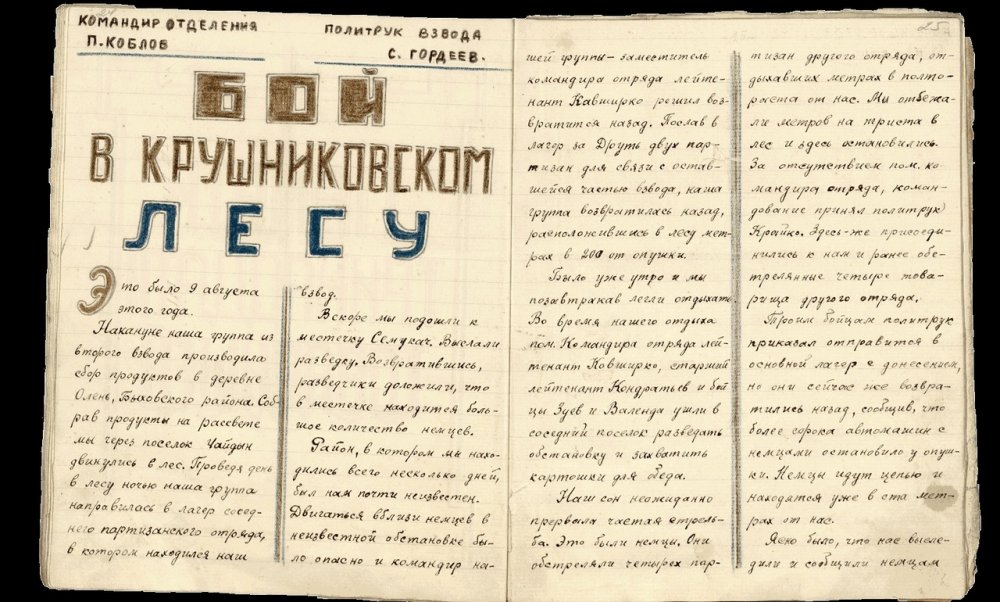 КОМАНДИР ОТДЕЛЕНИЯ
П. КОБЛОВ
ПОЛИТРУК ВЗВОДА
С. ГОРДЕЕВ.
БОЙ
В КРУШНИКОВСКОМ
ЛЕСУ
Это было 9 августа
этого года.
Накануне наша группа из
второго взвода производила
сбор продуктов в деревне
Олень, Быховского района. Соб-
рав продукты на рассвете
мы через поселок Чайдын
двинулись в лес. Проведя день
в лесу ночью наша группа
направилась в лагер сосед-
него партизанского отряда,
в котором находился наш
взвод.
Вскоре мы подошли к
местечку Семукач. Выслали
разведку. Возвратившись,
разведчики доложили, что
в местечке находится боль-
шое количество немцев.
Район, в котором мы нахо-
дились всего несколько дней,
был нам почти неизвестен.
Двигаться вблизи немцев в
неизвестной обстановке бы-
ло опасно и командир на-
25
шей группы - заместитель
командира отряда лейте-
нант Кавширко решил воз-
вратится назад. Послав в
лагер за Друть двух пар-
тизан для связи с остав-
шейся частью взвода, наша
группа возвратилась назад,
расположившись в лесу мет-
рах в 200 от опушки.
Было уже утро и мы
позавтракав легли отдыхать.
Во время нашего отдыха
пом. Командира отряда лей-
тенант Ковширко, старший
лейтенант Кондратьев и бой-
цы Зуев и Валенда ушли в
соседний поселок разведать
обстановку и захватить
картошки для обеда.
Наш сон неожиданно
прервала частая стрель-
ба. Это были немцы. Они
обстреляли четырех пар-
тизан другого отряда, от-
дыхавших метрах в полто-
раста от нас. Мы отбежа-
ли метров на триста в
лес и здесь остановились.
За отсутствием пом. ко-
мандира отряда, коман-
дование принял политрук
Крайко. Здесь-же присоеди-
нились к нам и ранее обс-
трелянные четыре това-
рища другого отряда,
Троим бойцам политрук
приказал отправится в
основной лагер с донесением,
но они сейчас же возвра-
тились назад, сообщив, что
более сорока автомашин с
немцами остановило у опуш-
ки. Немцы идут цепью и
находятся уже в ста мет-
рах от нас.
Ясно было, что нас высле-
дили и сообщили немцам